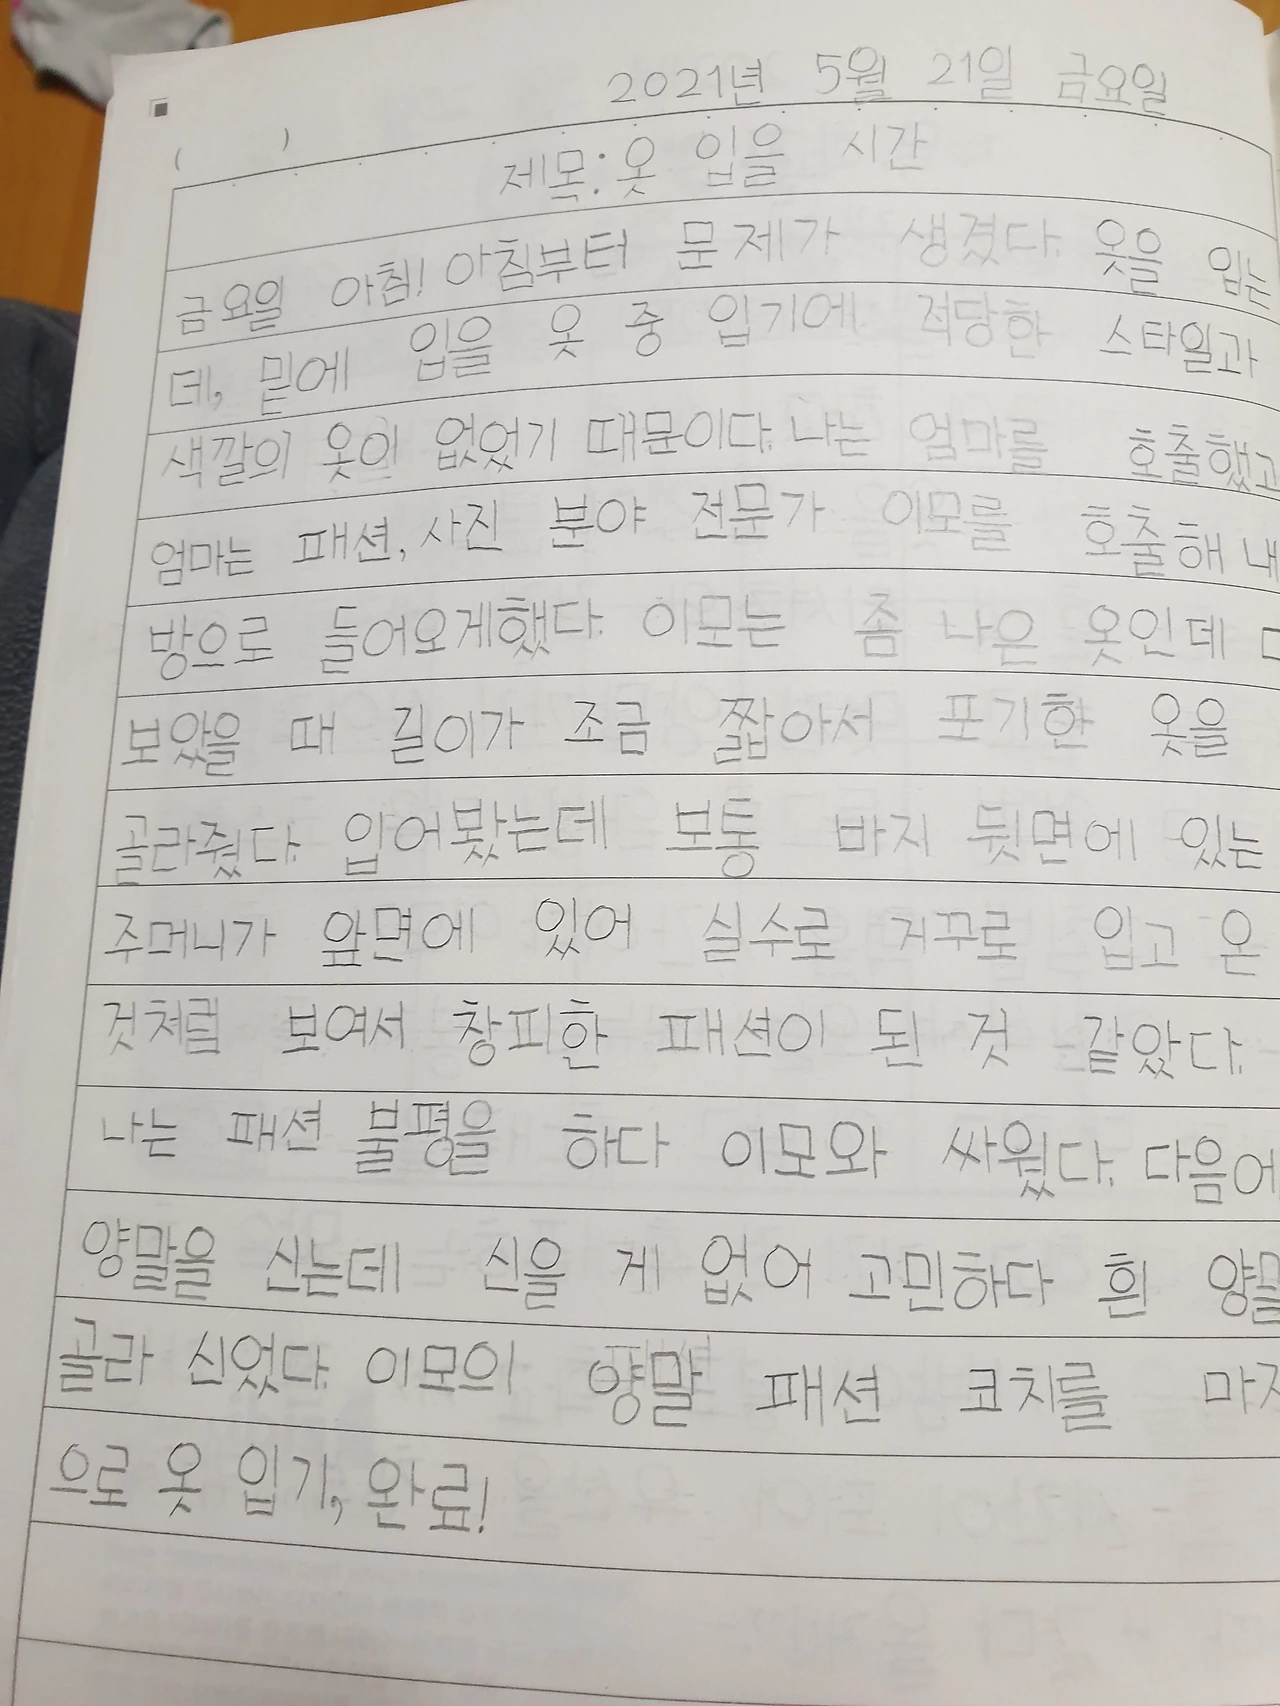 2021년 5월 21일 금요일
( )
제목: 옷 입을 시간
금요일 아침! 아침부터 문제가 생겼다. 옷을 입는
데, 밑에 입을 옷 중 입기에 적당한 스타일과
색깔의 옷이 없었기 때문이다. 나는 엄마를 호출했고
엄마는 패션, 사진 분야 전문가 이모를 호출해 내
방으로 들어오게했다. 이모는 좀 나은 옷인데
보았을 때 길이가 조금 짧아서 포기한 옷을
골라줬다. 입어봤는데 보통 바지 뒷면에 있는
주머니가 앞면에 있어 실수로 거꾸로 입고 온
것처럼 보여서 창피한 패션이 된 것 같았다.
나는 패션 불평을 하다 이모와 싸웠다. 다음에
양말을 신는데 신을 게 없어 고민하다 흰 양말
골라 신었다. 이모의 양말 패션 코치를 마지
으로 옷 입기, 완료!